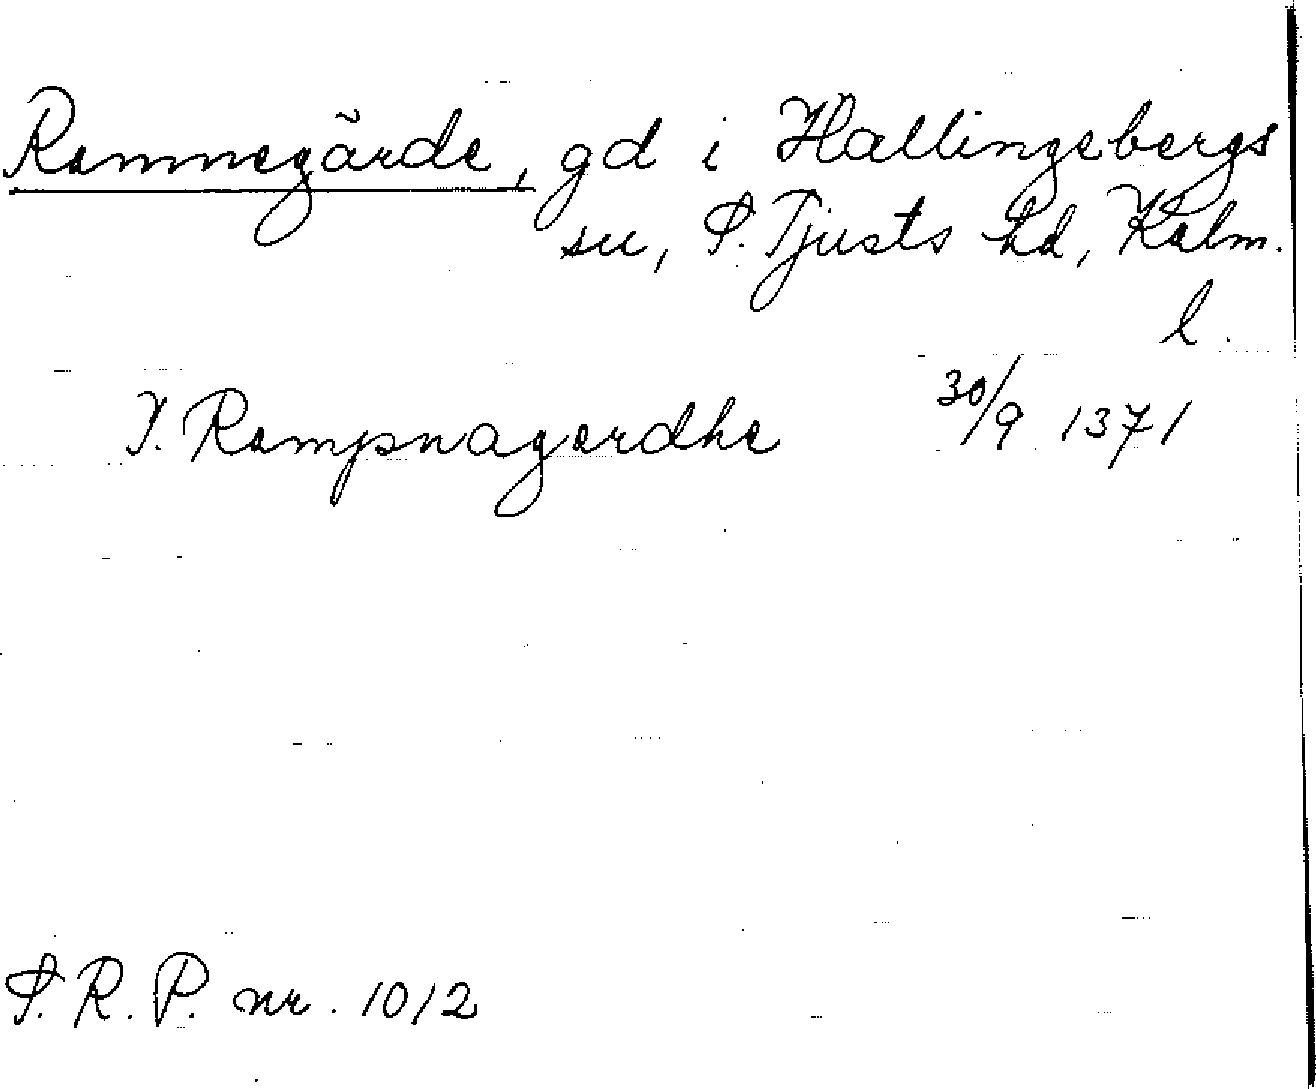 Ramnegärde, gd i Hallingebergs
su, S. Tjusts hd, Kalm.
l.
J. Rampnagærdhe 30/9 1371
S. R. P. nr. 1012